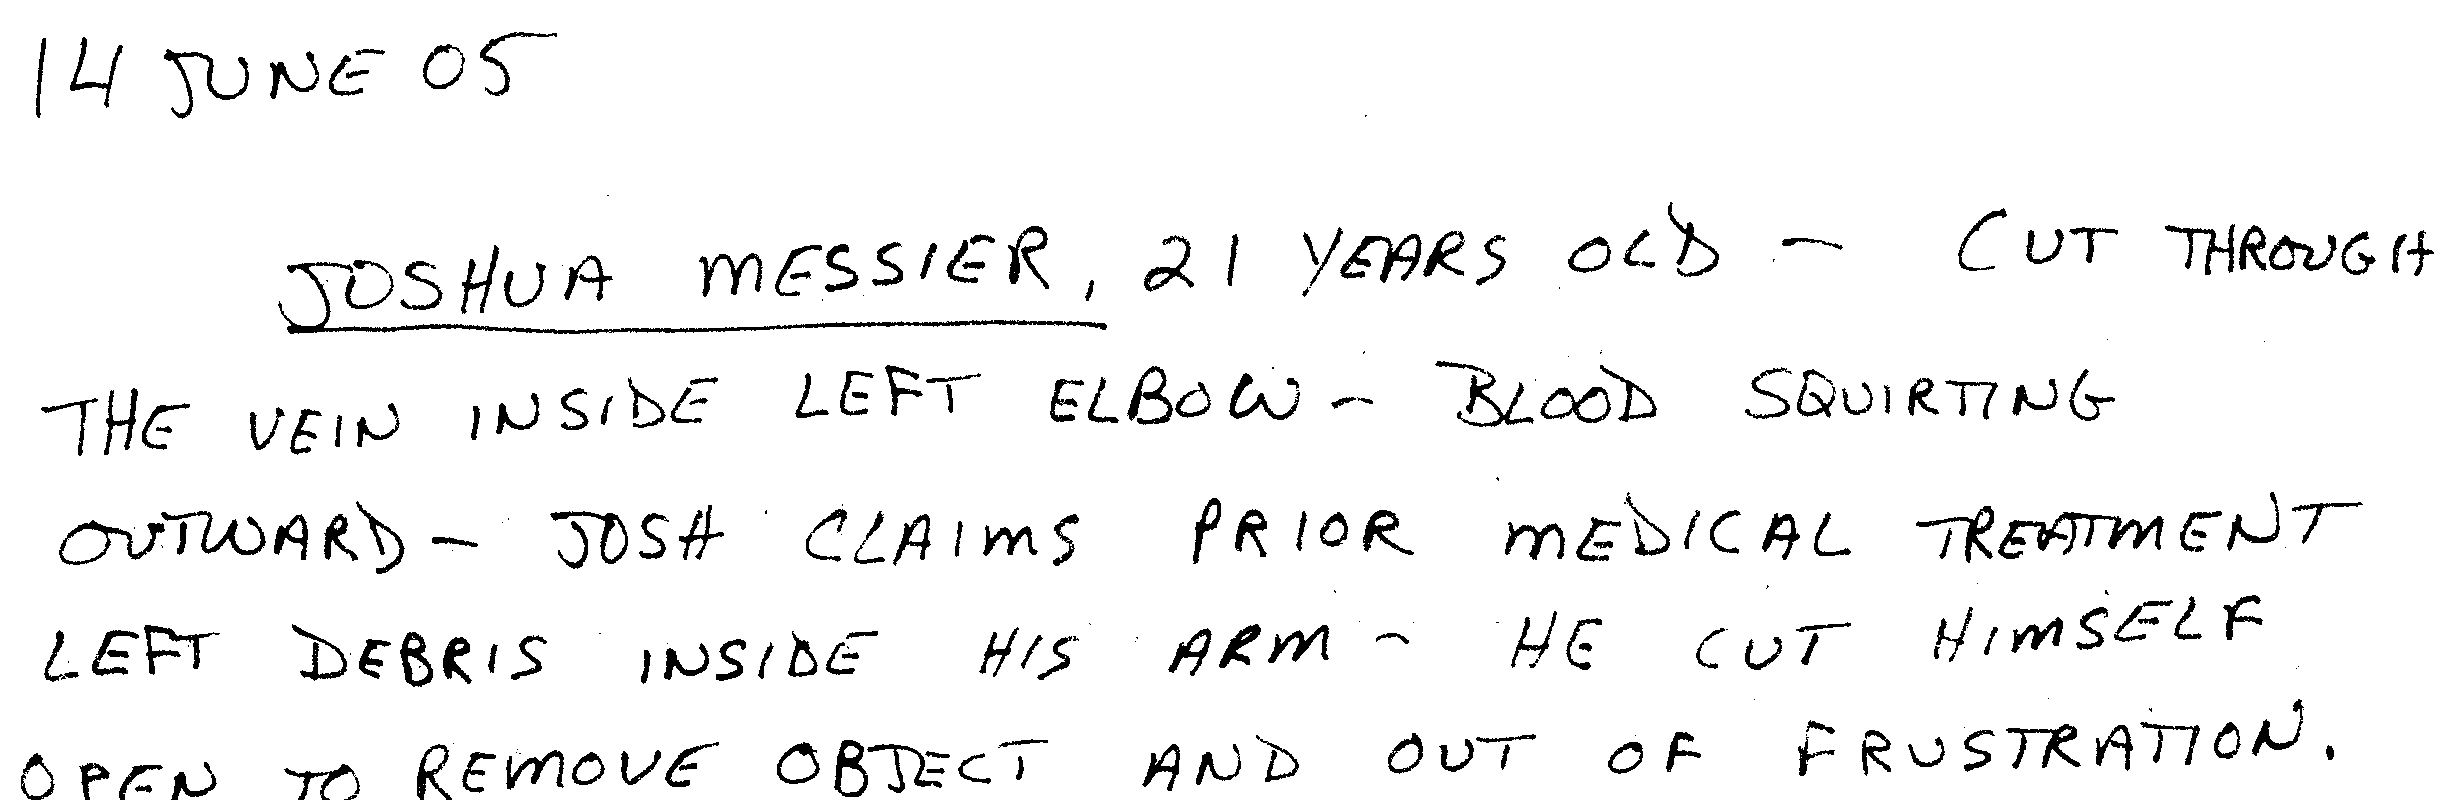 14 JUNE 05
JOSHUA MESSIER, 21 YEARS OLD - CUT THROUGH
THE VEIN INSIDE LEFT ELBOW - BLOOD SQUIRTING
OUTWARD - JOSH CLAIMS PRIOR MEDICAL TREATMENT
LEFT DEBRIS INSIDE HIS ARM - HE CUT HIMSELF
OPEN TO REMOVE OBJECT AND OUT OF FRUSTRATION.